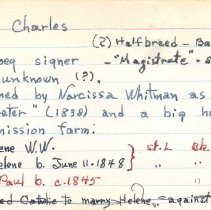 Charles
(2) Halfbreed - Ba
oeq signer - "Magistrate" - s
unknown (?).
ned by Narcissa Whitman as
eter" (1838) and a big he
mission farm.
ene W.W. st. L Bk.
elene b. June 11. 1848 " "
Paul b. c. 1845 " "
ed Catolic to marry Helene, against